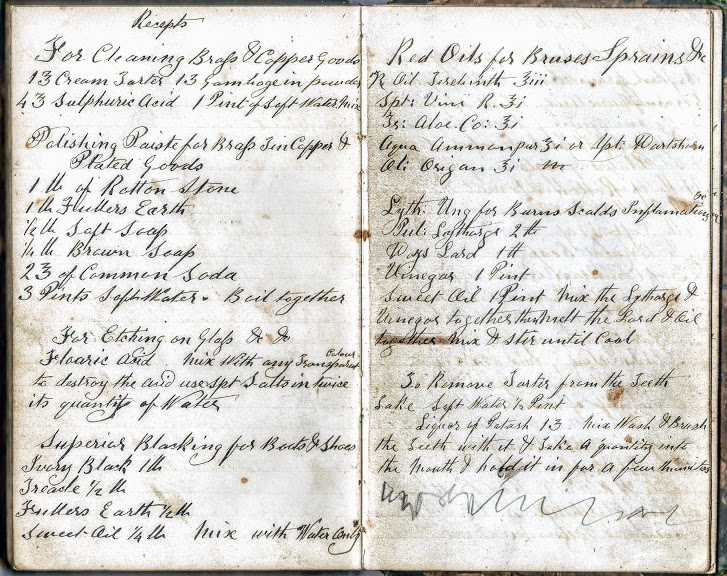 Recepts
For Cleaning Brass & Copper Goods
1 ℥ Cream Tarter 1 ℥ Gamboge in powder
4 ℥ Sulphuric Acid 1 Pint of Soft Water Mix
Polishing Paiste for Brass Tin Copper &
Plated Goods
1 lb of Rotton Stone
1 lb Fullers Earth
1/2 lb Soft Soap
1/4 lb Brown Soap
2 ℥ of Common Soda
3 Pints Soft Water. Boil together
For Etching on Glass &
Floaric Acid Mix With any Transparent Colour
to destroy the acid use Spt Salts in twice
its quantity of Water
Superior Blacking for Boots & Shoes
Ivory Black 1 lb
Treacle 1/2 lb
Fullers Earth 1/2 lb
Sweet Oil 1/4 lb Mix with Water Only
Red Oils for Bruses Sprains &c
R Oil Terebinth ℥iii
Spt: Vini R. ℥i
Tr: Aloe Co: ℥i
Aqua Ammon pur ℥i or Spt: Hartshorn
Oli Origan ℥i m
Lyth: Ung for Burns Scalds Inflamation &c
Pul: Lytharge 2 lb
Hogs Lard 1 lb
Vinegar 1 Pint
Sweet Oil 1 Pint Mix the Lytharge &
Vinegar together then Melt the Lard & Oil
together Mix & stir until Cool
To Remove Tarter from the Teeth
Take Soft Water 1/2 Pint
Liquor of Potash 1 ℥. Mix Wash & Brush
the Teeth with it & Take a quantity into
the Mouth & hold it in for a few minutes